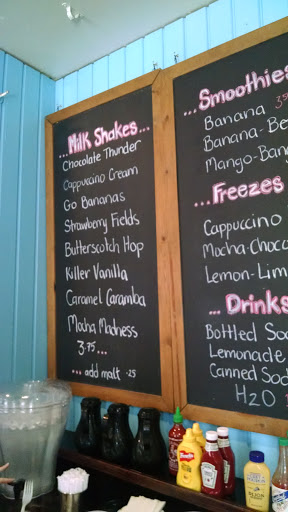 ...Milk Shakes...
Chocolate Thunder
Cappuccino Cream
Go Bananas
Strawberry Fields
Butterscotch Hop
Killer Vanilla
Caramel Caramba
Mocha Madness
3.75 ...
... add malt .25
...Smoothies
Banana
Banana-Be
Mango-Bang
...Freezes
Cappuccino
Mocha-Choco
Lemon-Lim
... Drinks
Bottled Soda
Lemonade
Canned Sod
H2O